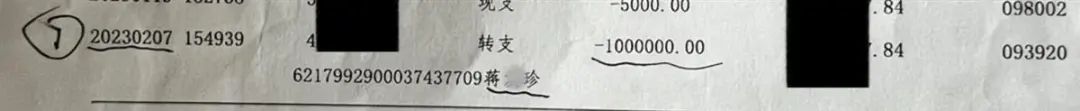 现支 -5000.00 .84 098002
7 20230207 154939 4 转支 -1000000.00 .84 093920
6217992900037437709蒋 珍